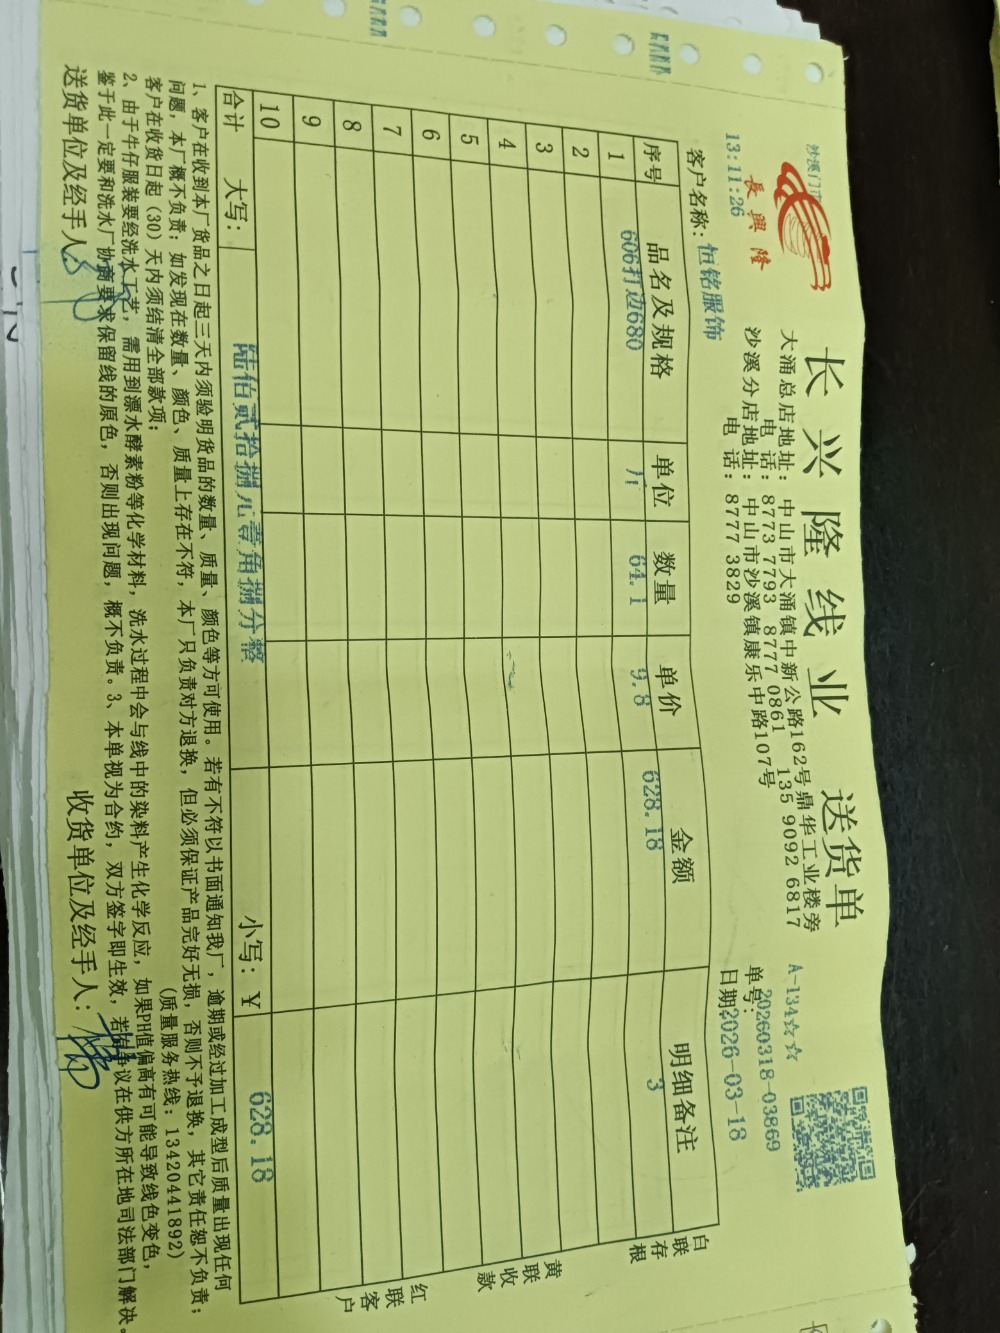 沙溪门市
13:11:26
長興隆
长兴隆线业 送货单
大涌总店地址：中山市大涌镇中新公路162号鼎华工业楼旁
电话：8773 7793 8777 0861 135 9092 6817
沙溪分店地址：中山市沙溪镇康乐中路107号
电话：8777 3829
A-134☆☆
单号:20260318-03869
日期:2026-03-18
客户名称：恒铭服饰
序号 品名及规格 单位 数量 单价 金额 明细备注
1 606打边680 斤 64.1 9.8 628.18 3
2
3
4
5
6
7
8
9
10
合计 大写：陆佰贰拾捌元壹角捌分整 小写：¥ 628.18
白联存根
黄联收款
红联客户
1、客户在收到本厂货品之日起三天内须验明货品的数量、质量、颜色等方可使用。若有不符以书面通知我厂，逾期或经过加工成型后质量出现任何
问题，本厂概不负责；如发现在数量、颜色、质量上存在不符，本厂只负责对方退换，但必须保证产品完好无损，否则不予退换，其它责任恕不负责；
客户在收货日起（30）天内须结清全部款项； (质量服务热线：13420441892)
2、由于牛仔服装要经洗水工艺，需用到漂水酵素粉等化学材料，洗水过程中会与线中的染料产生化学反应，如果PH值偏高有可能导致线色变色，
鉴于此一定要和洗水厂协商要求保留线的原色，否则出现问题，概不负责。3、本单视为合约，双方签字即生效，若有争议在供方所在地司法部门解决。
送货单位及经手人： 收货单位及经手人：